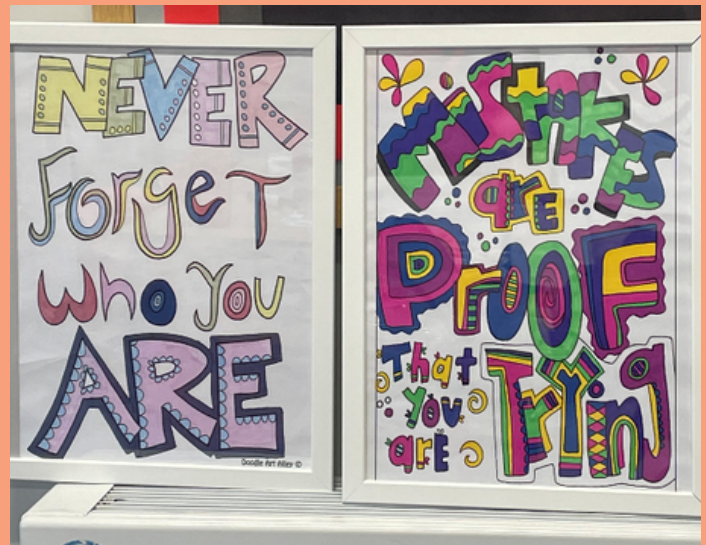 NEVER
Forget
Who You
ARE
Doodle Art Alley ©
Mistakes
are
Proof
That
you
are
Trying